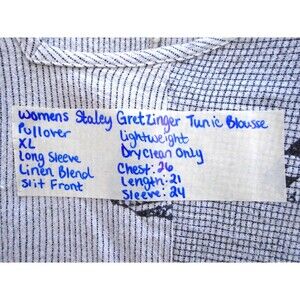 Womens Staley Gretzinger Tunic Blouse
Pullover
XL
Long Sleeve
Linen Blend
Slit Front
Lightweight
Dryclean Only
Chest: 26
Length: 21
Sleeve: 24